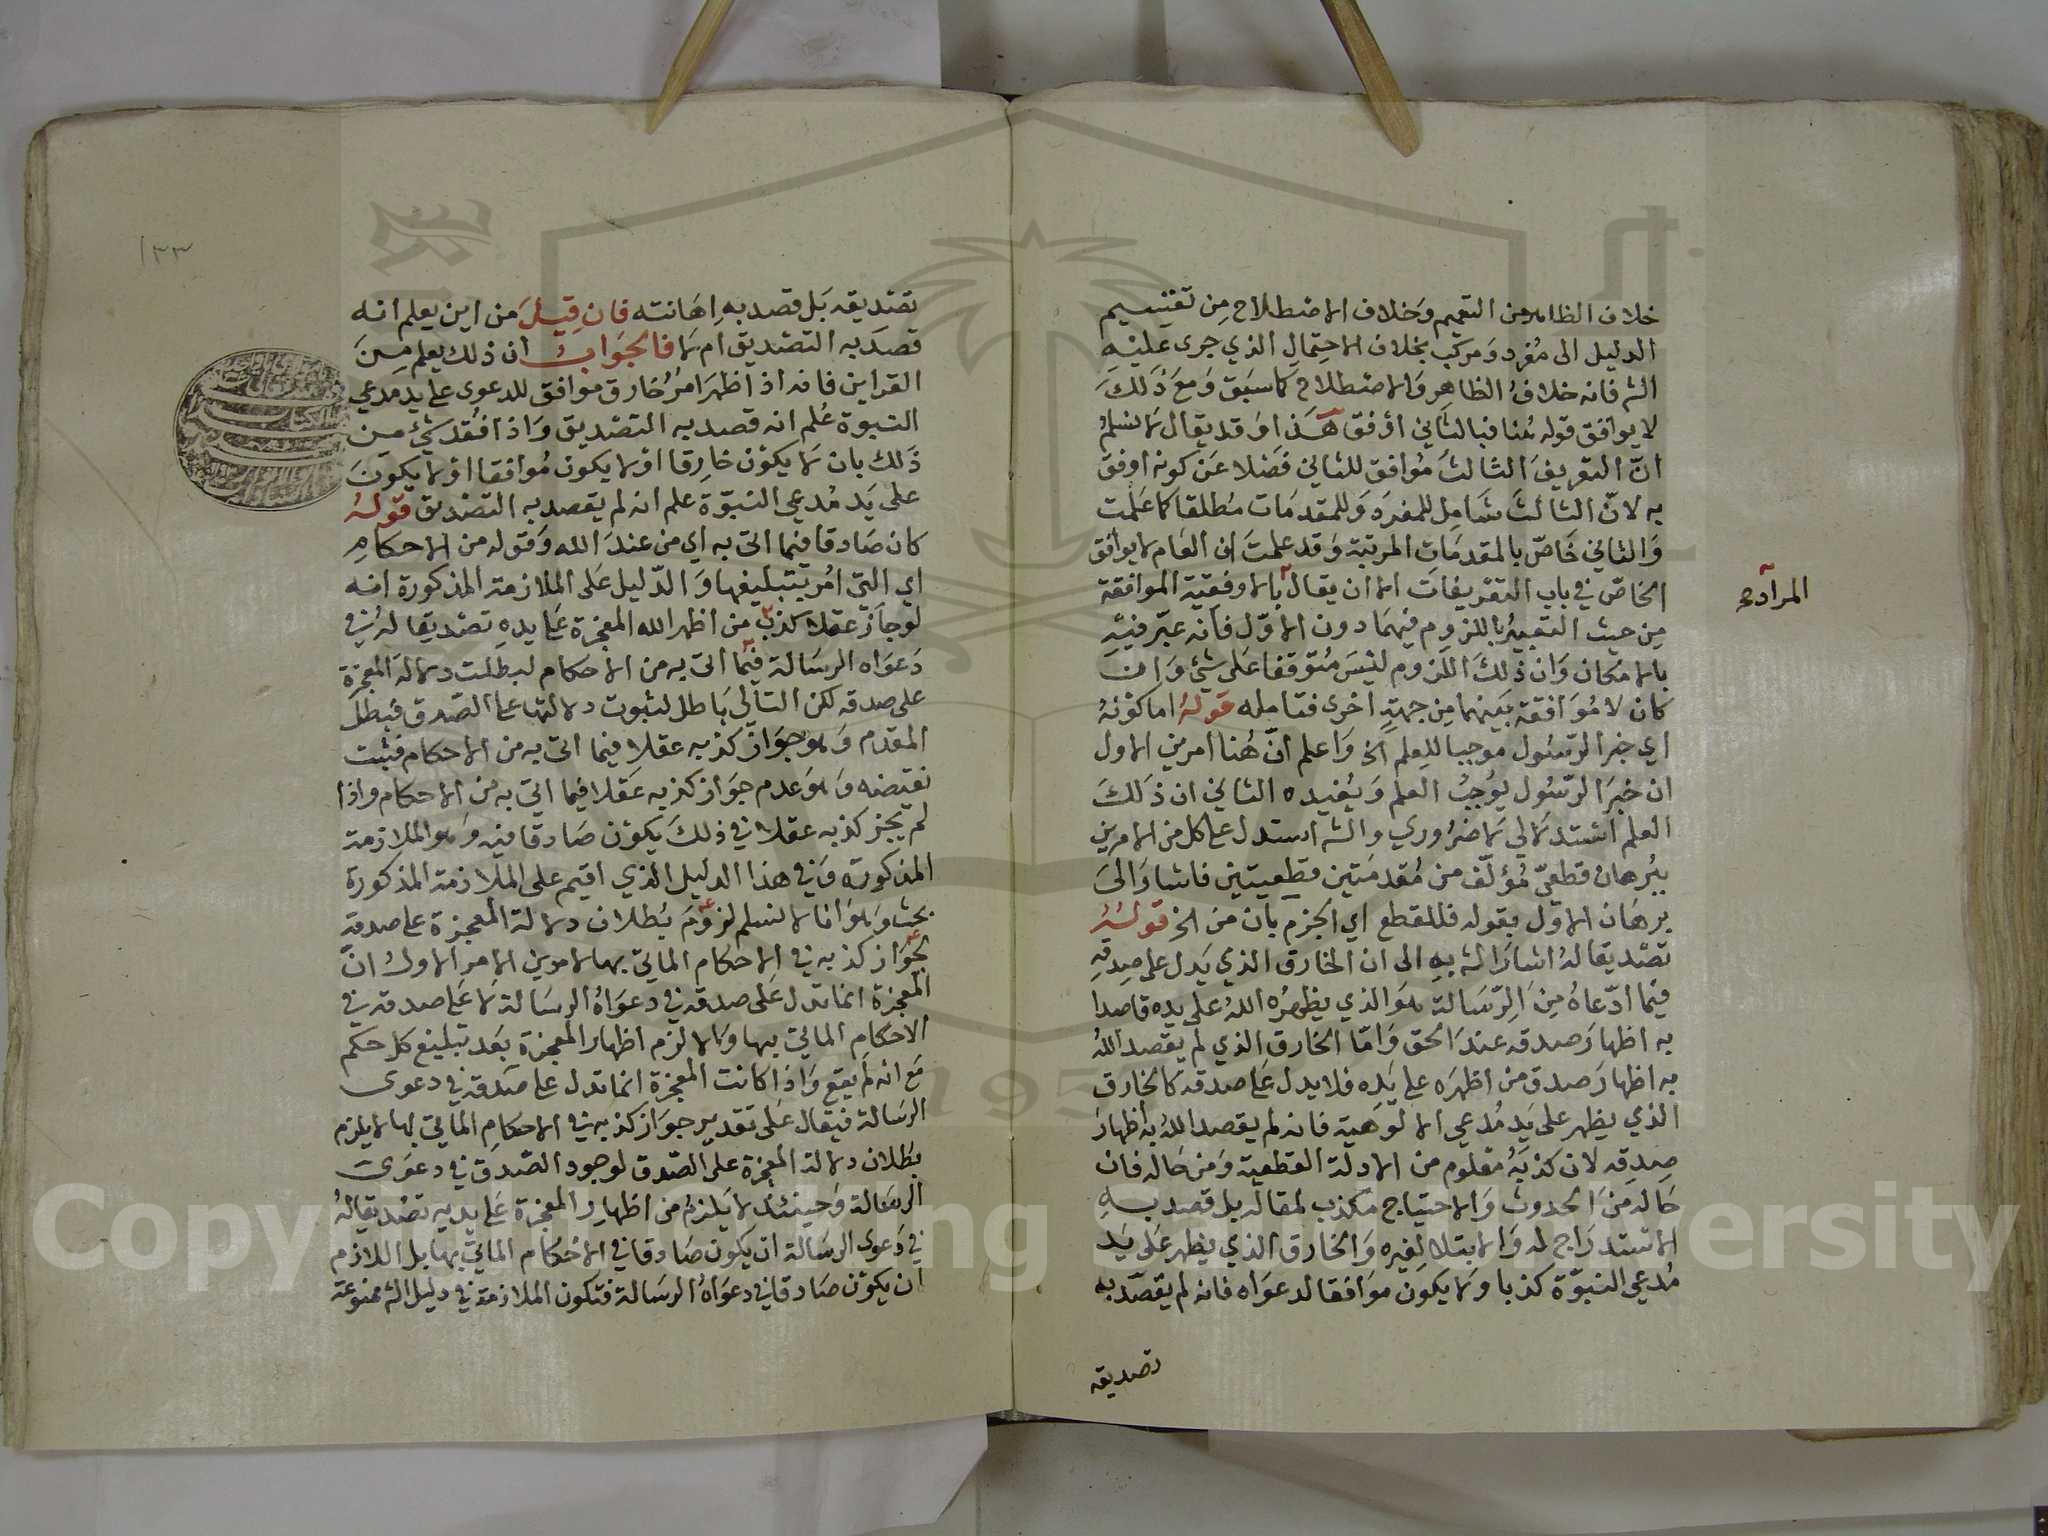 خلاف الظاهر من التعميم وخلاف الاصطلاح من تقسيم
الدليل الى مفرد ومركب بخلاف الاحتمال الذي جرى عليه
الش فانه خلاف الظاهر والاصطلاح كما سبق ومع ذلك
لا يوافق قوله هنا فبالثاني اوفق هذا وقد يقال لا نسلم
ان التعريف الثالث موافق للثاني فضلا عن كونه اوفق
به لان الثالث شامل للمفرد وللمقدمات مطلقا كما علمت
والثاني خاص بالمقدمات المرتبة وقد علمت ان العام لا يوافق
الخاص في باب التعريفات الا ان يقال بالاوفقية الموافقة
المراد صح
من حيث التعبير باللزوم فيهما دون الاول فانه عبر فيه
بالامكان وان ذلك اللزوم ليس متوقفا على شيء وان
كان لا موافقة بينهما من جهة اخرى فتامله قوله اما كونه
اي خبر الرسول موجبا للعلم الخ واعلم ان هنا امرين الاول
ان خبر الرسول يوجب العلم ويفيده الثاني ان ذلك
العلم استدلالي لا ضروري والش استدل على كل من الامرين
ببرهان قطعي مؤلف من مقدمتين قطعيتين فاشار الى
برهان الاول بقوله فللقطع اي الجزم بان من الخ قوله
تصديقا له اشار الش به الى ان الخارق الذي يدل على صدقه
فيما ادعاه من الرسالة هو الذي يظهره الله على يده قاصدا
به اظهار صدقه عند الحق واما الخارق الذي لم يقصد الله
به اظهار صدق من اظهره على يده فلا يدل على صدقه كالخارق
الذي يظهر على يد مدعي الالوهية فانه لم يقصد الله به اظهار
صدقه لان كذبه معلوم من الادلة القطعية ومن حاله فان
حاله من الحدوث والاحتياج مكذب لمقاله بل قصد به
الاستدراج له والابتلا لغيره والخارق الذي يظهر على يد
مدعي النبوة كذبا ولا يكون موافقا لدعواه فانه لم يقصد به
تصديقه
١٣٣
تصديقه بل قصد به اهانته فان قيل من اين يعلم انه
قصد به التصديق ام لا فالجواب ان ذلك يعلم من
القراين فانه اذ اظهر امر خارق موافق للدعوى على يد مدعي
النبوة علم انه قصد به التصديق واذا فقد شيء من
ذلك بان لا يكون خارقا او لا يكون موافقا او لا يكون
على يد مدعي النبوة علم انه لم يقصد به التصديق قوله
كان صادقا فيما اتى به اي من عند الله وقوله من الاحكام
اي التي امر بتبليغها والدليل على الملازمة المذكورة انه
لو جاز عقلا كذب من اظهر الله المعجزة على يده تصديقا له في
دعواه الرسالة فيما اتى به من الاحكام لبطلت دلالة المعجزة
على صدقه لكن التالي باطل لثبوت دلالتها على الصدق فبطل
المقدم وهو جواز كذبه عقلا فيما اتى به من الاحكام فثبت
نقيضه وهو عدم جواز كذبه عقلا فيما اتى به من الاحكام واذا
لم يجز كذبه عقلا في ذلك يكون صادقا فيه وهو الملازمة
المذكورة وفي هذا الدليل الذي اقيم على الملازمة المذكورة
بحث وهو انا لا نسلم لزوم بطلان دلالة المعجزة على صدقه
لجواز كذبه في الاحكام الماتي بها لامرين الامر الاول ان
المعجزة انما تدل على صدقه في دعواه الرسالة لا على صدقه في
الاحكام الماتي بها والا لزم اظهار المعجزة بعد تبليغ كل حكم
مع انه لم يقع واذا كانت المعجزة انما تدل على صدقه في دعوى
الرسالة فيقال على تقدير جواز كذبه في الاحكام الماتي بها لا يلزم
بطلان دلالة المعجزة على الصدق لوجود الصدق في دعوى
الرسالة وحينئذ لا يلزم من اظهار المعجزة على يديه تصديقا له
في دعوى الرسالة ان يكون صادقا في الاحكام الماتي بها بل اللازم
ان يكون صادقا في دعواه الرسالة فتكون الملازمة في دليل الش ممنوعة